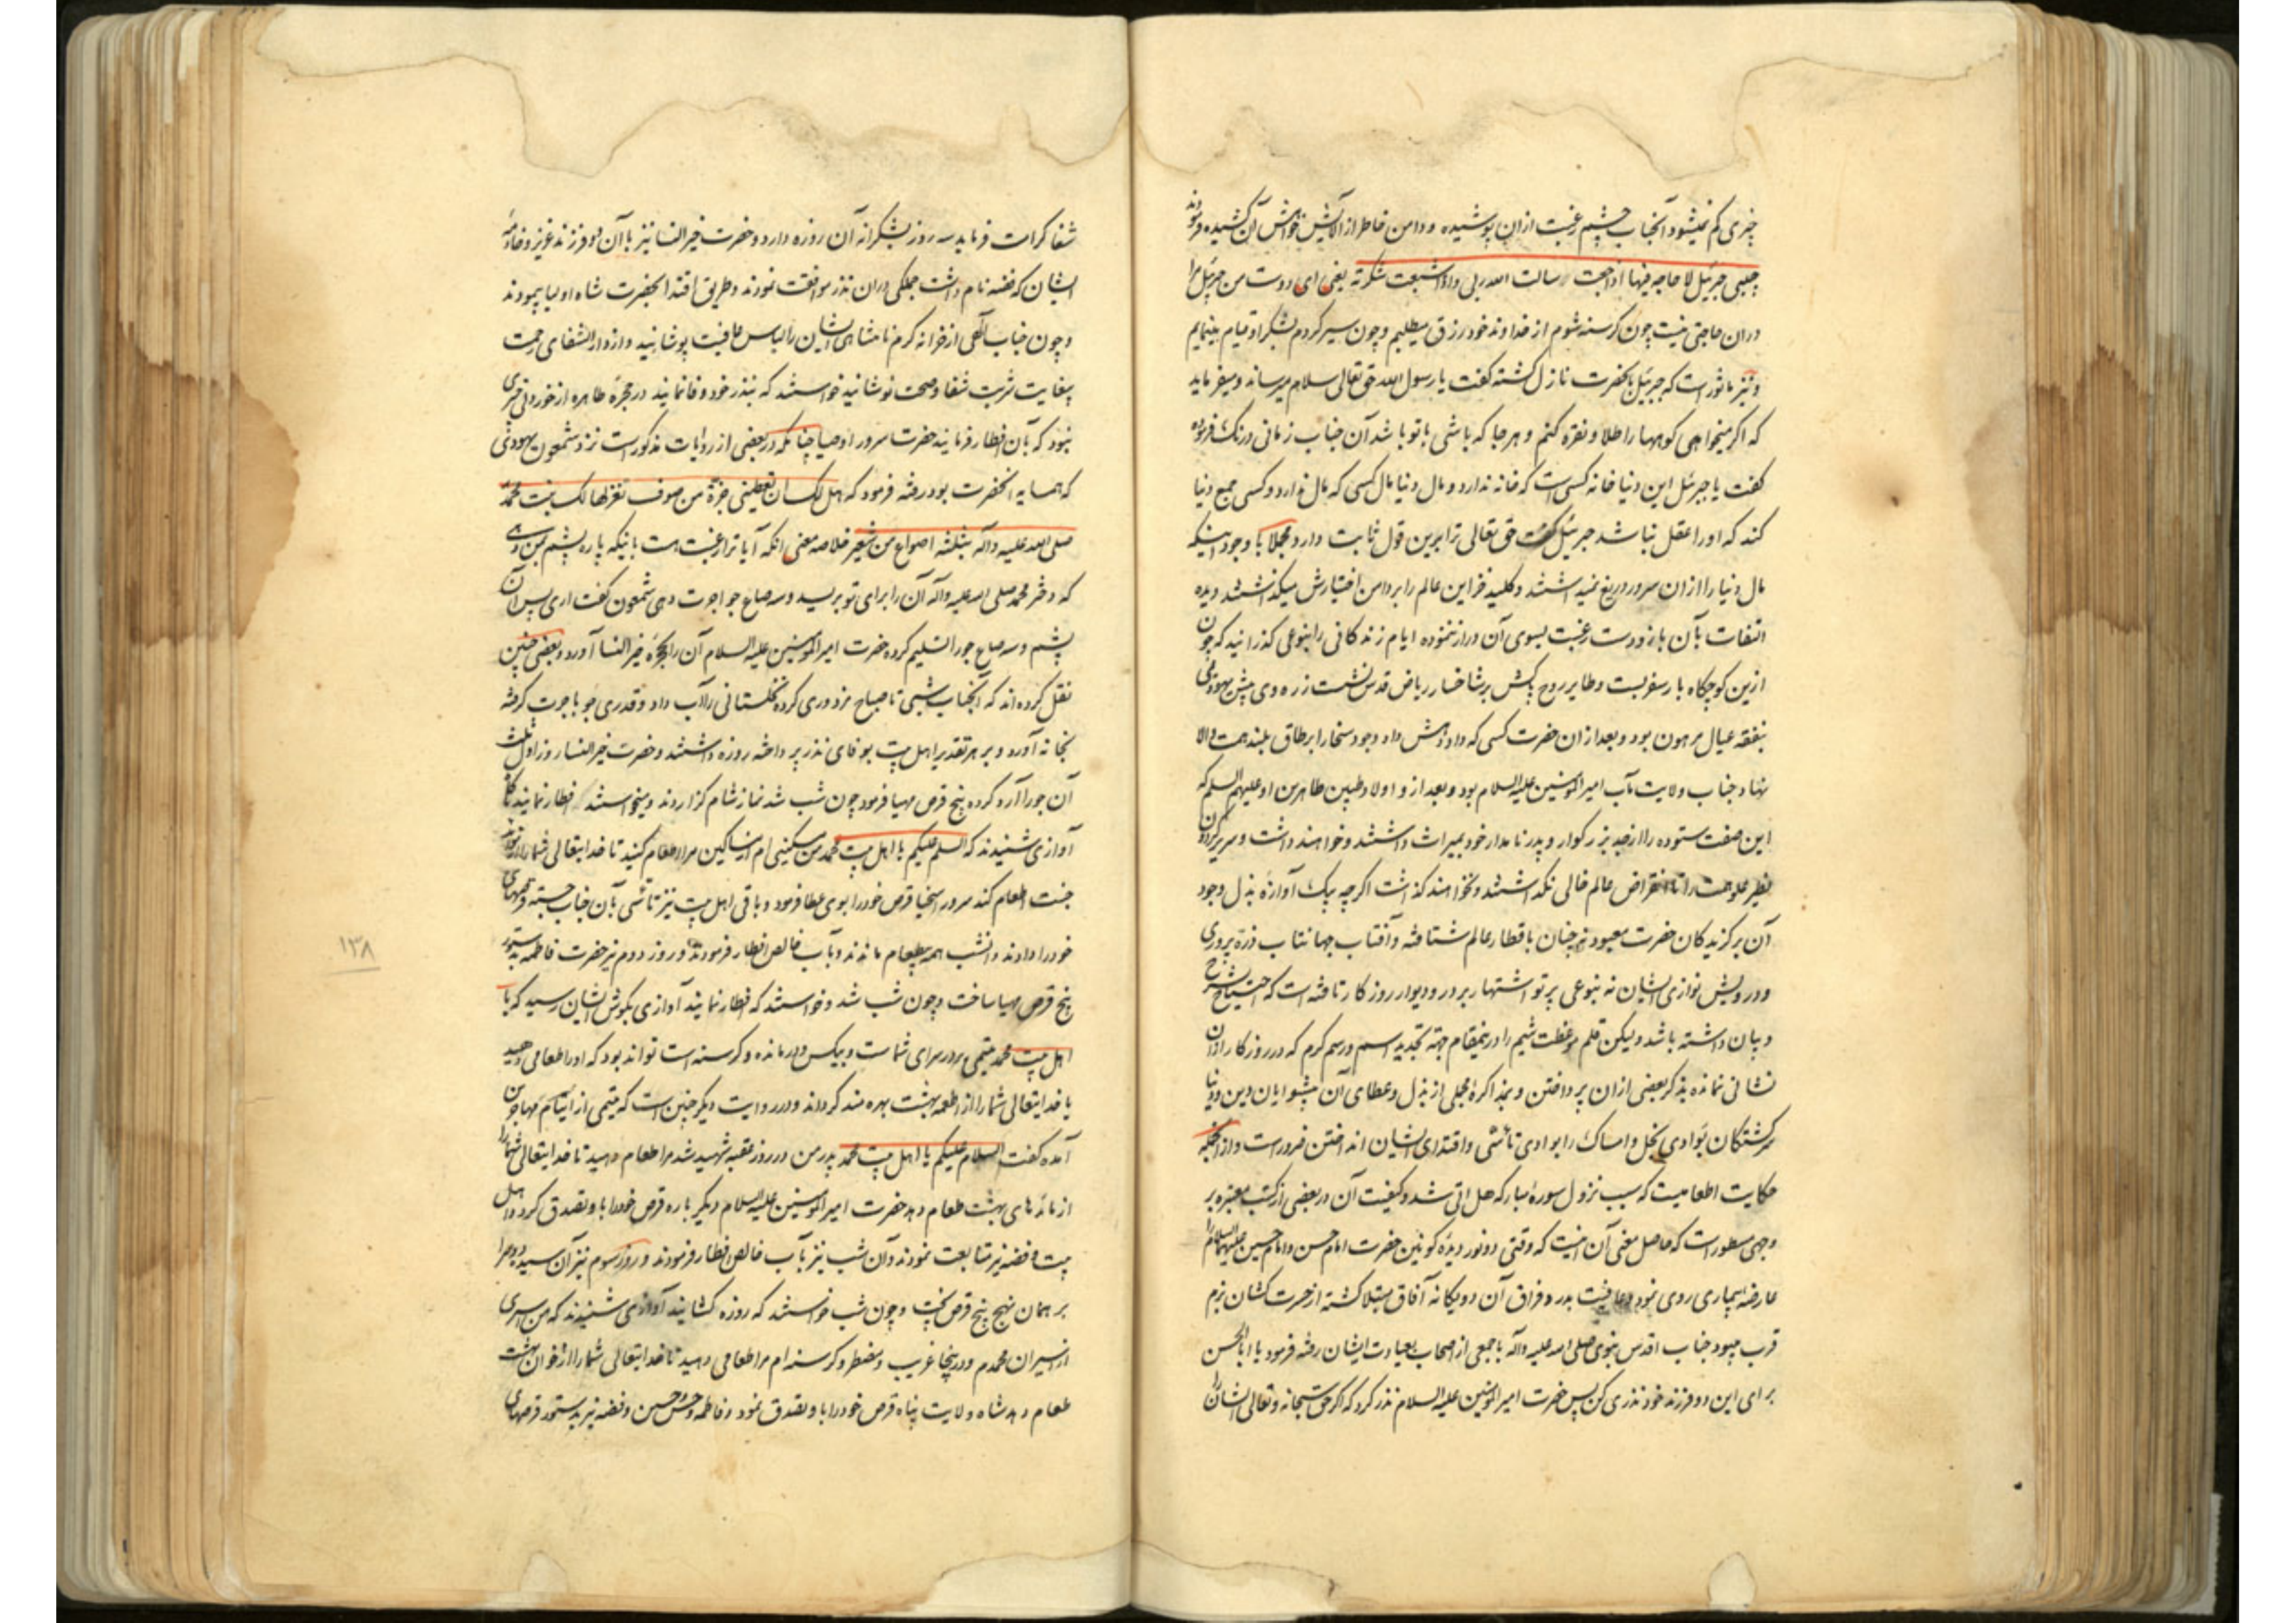 چیزی کم نمیشود آنجناب چشم رغبت ازان پوشیده ودامن خاطر از آلایش خواهش آن کشیده فرمودند
حبیبی جبرئیل لا حاجه فیها اذا جعت سالت الله ربی واذا شبعت شکرته یعنی ای دوست من جبرئیل مرا
دران حاجتی نیست چون کرسنه شوم از خداوند خود رزق میطلبم وچون سیر کردم بشکر او قیام مینمایم
ونیز ماثور است که جبرئیل بآنحضرت نازل کشته کفت یا رسول الله حق تعالی سلام میرساند ومیفرماید
که اکر میخواهی کوهها را طلا ونقره کنم وهر جا که باشی با تو باشد آن جناب زمانی درنک فرموده
کفت یا جبرئیل این دنیا خانه کسی است که خانه ندارد ومال دنیا مال کسی که مال ندارد وکسی جمع دنیا
کند که او را عقل نباشد جبرئیل کفت حق تعالی ترا برین قول ثابت دارد مجملا با وجود اینکه
مال دنیا را ازان سرور دریغ نمیداشتند وکلید خزاین عالم را بر دامن اختیارش میکذاشتند دیده
التفات بآن باز ودست رغبت بسوی آن دراز ننموده ایام زندکانی را بنوعی کذرانید که چون
ازین کوچکاه بار سفر بست وطایر روح پاکش بر شاخسار ریاض قدس نشست زره وی پیش یهودئی
بنفقه عیال مرهون بود وبعد ازان حضرت کسی که داد دهش داد وجود سخا را بر طاق بلند همت والا
نهاد جناب ولایت مآب امیر المؤمنین علیه السلام بود وبعد ازو اولاد طیبین طاهرین او علیهم السلم که
این صفت ستوده را از جد بزرکوار وپدر نامدار خود بمیراث داشتند وخواهند داشت وسریر کردون
نظیر علو همت را تا انقراض عالم خالی نکذاشتند ونخواهند کذاشت اکرچه پیک آوازه بذل وجود
آن برکزیدکان حضرت معبود نه چنان باقطار عالم شتافته وآفتاب جهانتاب ذره پروری
ودرویش نوازی ایشان نه بنوعی پرتو اشتهار بر در ودیوار روزکار تافته است که احتیاج بشرح
وبیان داشته باشد ولیکن قلم موعظت شیم را درینمقام جهة تجدید اسم ورسم کرم که در روزکار ازان
نشانی نمانده بذکر بعضی ازان پرداختن وبمذاکره مجملی از بذل وعطای آن پیشوایان دین ودنیا
سرکشتکان بوادی بخل وامساک را بوادی تأسّی واقتدای ایشان انداختن ضرورست وازانجمله
حکایت اطعامیست که سبب نزول سوره مبارکه هل اتی شد وکیفیت آن در بعضی از کتب معتبره بر
وجهی مسطور است که حاصل معنی آن اینست که وقتی دو نور دیده کونین حضرت امام حسن وامام حسین علیهما السلام را
عارضه بیماری روی نمود وعافیت بدرد فراق آن دو یکانه آفاق مبتلا کشته از حسرت کشان بزم
قرب میبود جناب اقدس نبوی صلی الله علیه وآله با جمعی از اصحاب بعیادت ایشان رفته فرمود یا ابا الحسن
برای این دو فرزند خود نذری کن پس حضرت امیر المؤمنین علیه السلام نذر کرد که اکر حق سبحانه وتعالی ایشان را
شفا کرامت فرماید سه روز بشکرانه آن روزه دارد وحضرت خیر النسا نیز با آن دو فرزند عزیز وخادمه
ایشان که فضه نام داشت جملکی دران نذر موافقت نمودند وطریق اقتدا بحضرت شاه اولیا پیمودند
وچون جناب الهی از خزانه کرم نامتناهی ایشان را لباس عافیت پوشانید واز دار الشفای رحمت
بیغایت شربت شفا وصحت نوشانید خواستند که بنذر خود وفا نمایند در حجره طاهره از خوردنی چیزی
نبود که بآن افطار فرمایند حضرت سرور اوصیا چنانکه در بعضی از روایات مذکورست نزد شمعون یهودئی
که همسایه آنحضرت بود رفته فرمود که هل لک ان تعطینی جزة من صوف تغزلها لک بنت محمد
صلی الله علیه وآله بثلثه اصواع من شعیر خلاصه معنی انکه آیا ترا رغبت هست باینکه پاره پشم بمن دهی
که دختر محمد صلی الله علیه وآله آن را برای تو بریسد وسه صاع جو اجرت دهی شمعون کفت اری پس آن
پشم وسه صاع جو را تسلیم کرده حضرت امیر المؤمنین علیه السلام آن را بحجره خیر النسا آورد وبعضی چنین
نقل کرده‌اند که آنجناب شبی تا صباح مزدوری کرده نخلستانی را آب داد وقدری جو باجرت کرفته
بخانه آورد وبر هر تقدیر اهل بیت بوفای نذر پرداخته روزه داشتند وحضرت خیر النسا روز اول ثلث
آن جو را آرد کرده پنج قرص مهیا فرمود چون شب شد نماز شام کزاردند ومیخواستند افطار نمایند ناکاه
آوازی شنیدند که السلم علیکم یا اهل بیت محمد من مسکینی ام از مساکین مرا اطعام کنید تا خدایتعالی شما را از موائد
جنت اطعام کند سرور اسخیا قرص خود را بوی عطا فرمود وباقی اهل بیت نیز تأسّی بآن جناب جسته قرصهای
خود را دادند وانشب همه بیطعام ماندند وبآب خالص افطار فرمودند وروز دوم نیز حضرت فاطمه بدستور
پنج قرص مهیا ساخت وچون شب شد وخواستند که افطار نمایند آوازی بکوش ایشان رسید که یا
اهل بیت محمد یتیمی بر در سرای شماست وبیکس ودرمانده وکرسنه است تواند بود که او را طعامی دهید
یا خدایتعالی شما را از اطعمه بهشت بهره‌مند کرداند ودر روایت دیکر چنین است که یتیمی از ایتام مهاجرین
آمده کفت السلام علیکم یا اهل بیت محمد پدر من در روز عقبه شهید شد مرا طعام دهید تا خدایتعالی شما را
از مائدهای بهشت طعام دهد حضرت امیر المؤمنین علیه السلام دیکر باره قرص خود را باو تصدق کرد واهل
بیت وفضه نیز متابعت نمودند وآن شب نیز بآب خالص افطار فرمودند وروز سوم نیز آن سیده دو سرا
بر همان نهج پنج قرص پخت وچون شب خواستند که روزه کشایند آوازی شنیدند که من اسیری
از اسیران محمدم ودرینجا غریب ومضطر وکرسنه ام مرا طعامی دهید تا خدایتعالی شما را از خوان بهشت
طعام دهد شاه ولایت پناه قرص خود را باو تصدق نمود وفاطمه وحسن وحسین وفضه نیز بدستور قرصهای
۱۳۸